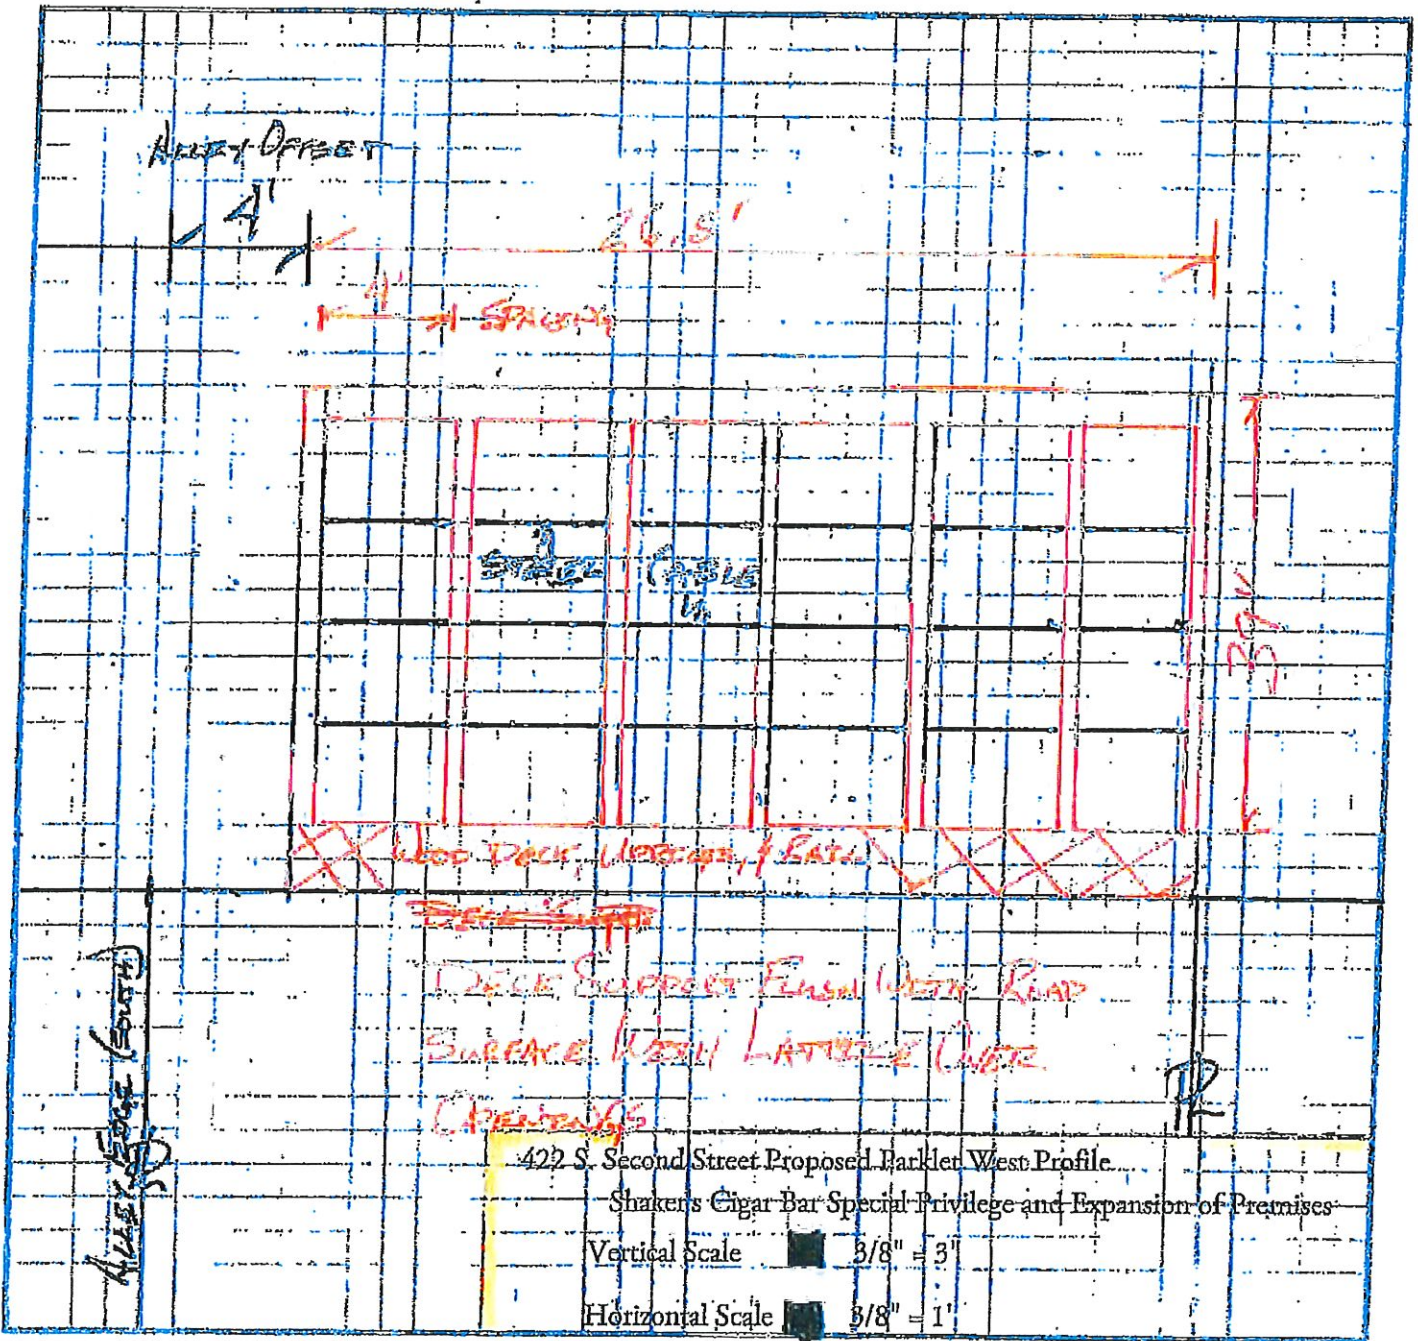 ALLEY OFFSET
4'
26.5'
4' SPACING
STEEL CABLE
39"
WOOD DECK, UPRIGHTS, & RAIL
DECK SUPPORT FLUSH WITH ROAD
SURFACE WITH LATTICE OVER
OPENINGS
ALLEY EDGE (SOUTH)
PL
422 S. Second Street Proposed Parklet West Profile
Shaker's Cigar Bar Special Privilege and Expansion of Premises
Vertical Scale 3/8" = 3"
Horizontal Scale 3/8" = 1'